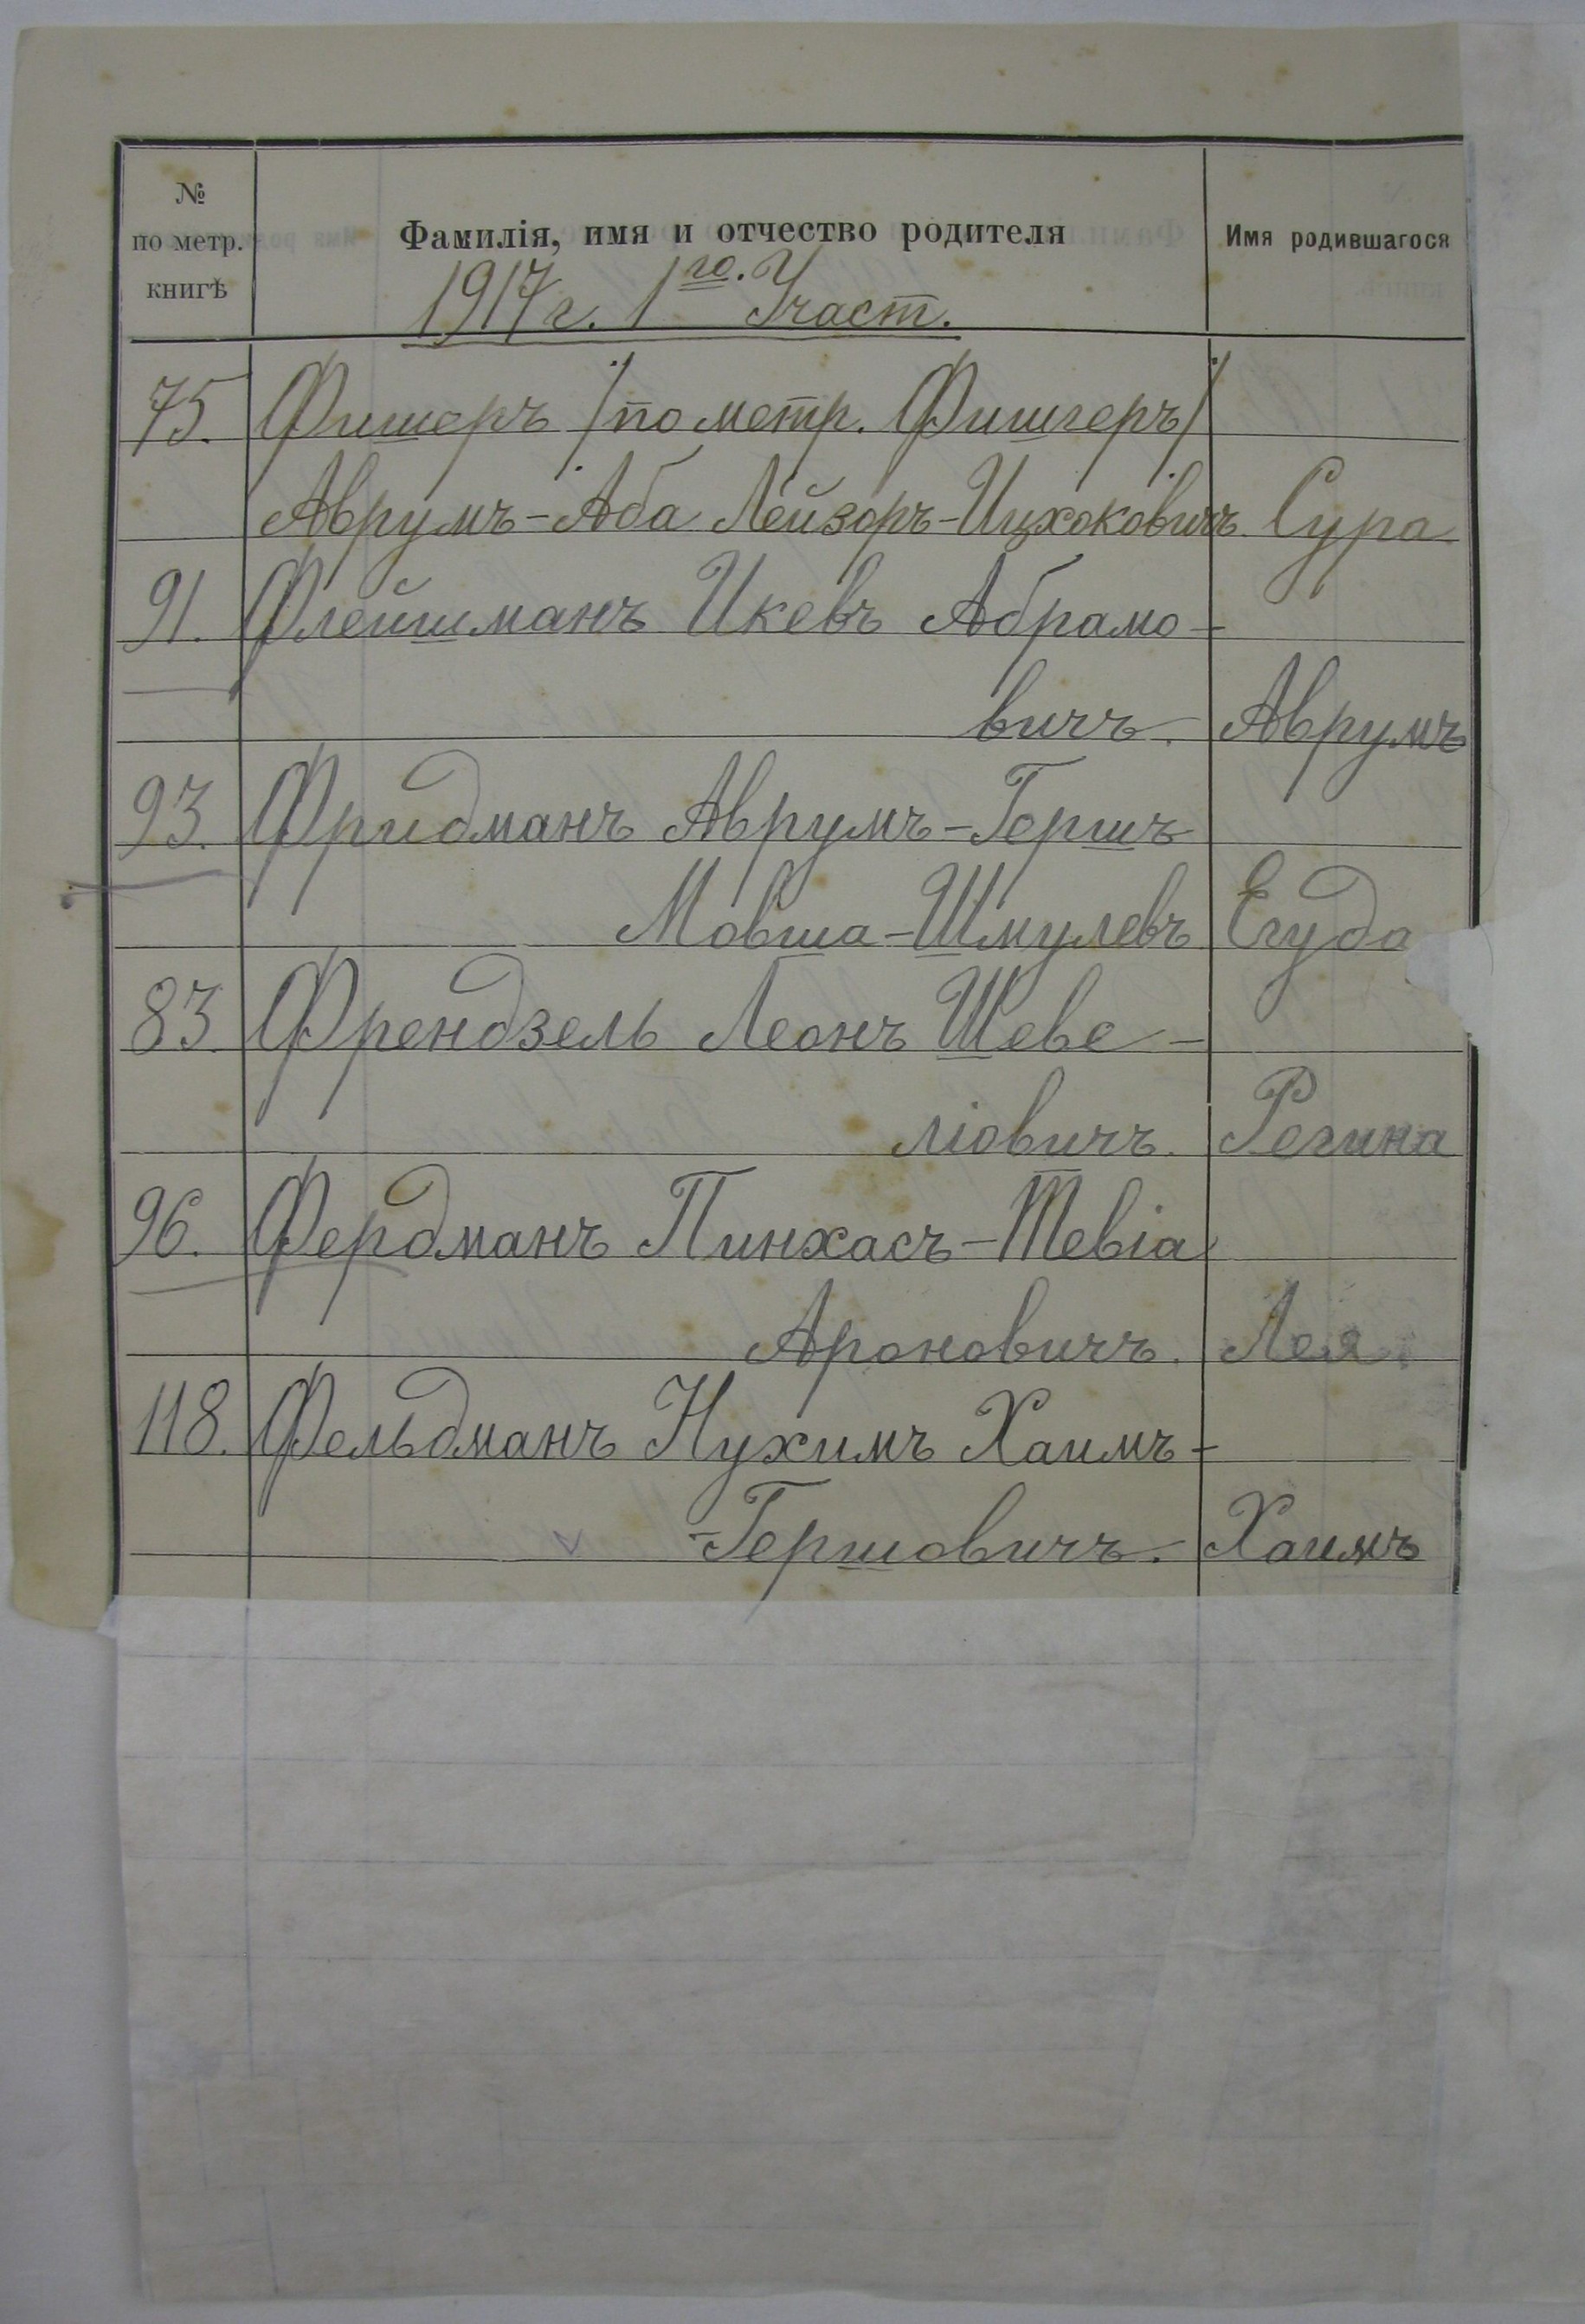 № по метр. книгѣ
Фамилія, имя и отчество родителя
Имя родившагося
1917 г. 1го. Участ.
75. Фишеръ /по метр. Фишгеръ/
Аврумъ-Аба Лейзоръ-Ицхоковичъ Сура
91. Флейшманъ Икевъ Абрамо-
вичъ. Аврумъ
93. Фридманъ Аврумъ-Гершъ
Мовша-Шмулевъ Егуда
83. Френдзель Леонъ Шеве-
ліовичъ. Регина
96. Фердманъ Пинхасъ-Тевіа
Ароновичъ. Лея.
118. Фельдманъ Нухимъ Хаимъ-
-Гершовичъ. Хаимъ